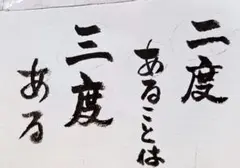 二度
あることは
三度
ある